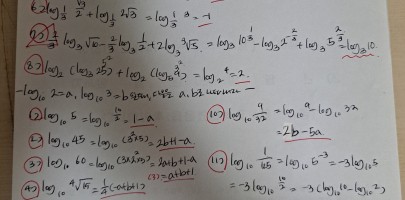 6) log_{1/3} √3/2 + log_{1/3} 2√3 = log_{1/3} 3 = -1
log_3 √10 - 2/3 log_3 1/2 + 2 log_3 ∛5 = log_3 10^{1/2} - log_3 2^{-2/3} + log_3 5^{2/3} = log_3 10.
8) log_2 (log_3 25) + log_2 (log_5 9) = log_2 4 = 2.
- log_10 2 = a, log_10 3 = b
1) log_10 5 = log_10 10/2 = 1-a
2) log_10 45 = log_10 (3²×5) = 2b+1-a
3) log_10 60 = log_10
= a+b+1
4) log_10 ⁴√15 = 1/4(-a+b+1)
10) log_10 9/32 = log_10 9 - log_10 32
= 2b-5a
11) log_10 1/125 = log_10 5^{-3} = -3 log_10 5
= -3 log_10 10/2 = -3(log_10 10 - log_10 2)